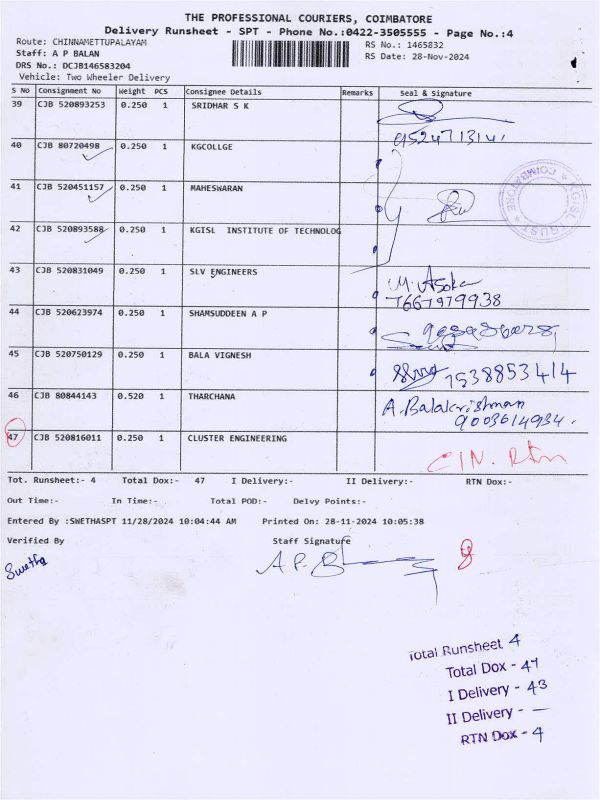 THE PROFESSIONAL COURIERS, COIMBATORE
Delivery Runsheet - SPT - Phone No.:0422-3505555 - Page No.:4
Route: CHINNAMETTUPALAYAM
Staff: A P BALAN
DRS No.: DCJB146583204
Vehicle: Two Wheeler Delivery
RS No.: 1465832
RS Date: 28-Nov-2024
S No Consignment No Weight PCS Consignee Details Remarks Seal & Signature
39 CJB 520893253 0.250 1 SRIDHAR S K
9524713141
40 CJB 80720498 0.250 1 KGCOLLGE
41 CJB 520451157 0.250 1 MAHESWARAN
KGISL TRUST * COIMBATORE *
42 CJB 520893588 0.250 1 KGISL INSTITUTE OF TECHNOLOG
43 CJB 520831049 0.250 1 SLV ENGINEERS M. Asoka
7667979938
44 CJB 520623974 0.250 1 SHAMSUDDEEN A P
45 CJB 520750129 0.250 1 BALA VIGNESH 7538853414
46 CJB 80844143 0.520 1 THARCHANA A. Balakrishnan
9003614934.
47 CJB 520816011 0.250 1 CLUSTER ENGINEERING
CIN. Rtn
Tot. Runsheet:- 4 Total Dox:- 47 I Delivery:- II Delivery:- RTN Dox:-
Out Time:- In Time:- Total POD:- Delvy Points:-
Entered By :SWETHASPT 11/28/2024 10:04:44 AM Printed On: 28-11-2024 10:05:38
Verified By Staff Signature
Swetha
A P. B
Total Runsheet 4
Total Dox - 47
I Delivery - 43
II Delivery - —
RTN Dox - 4